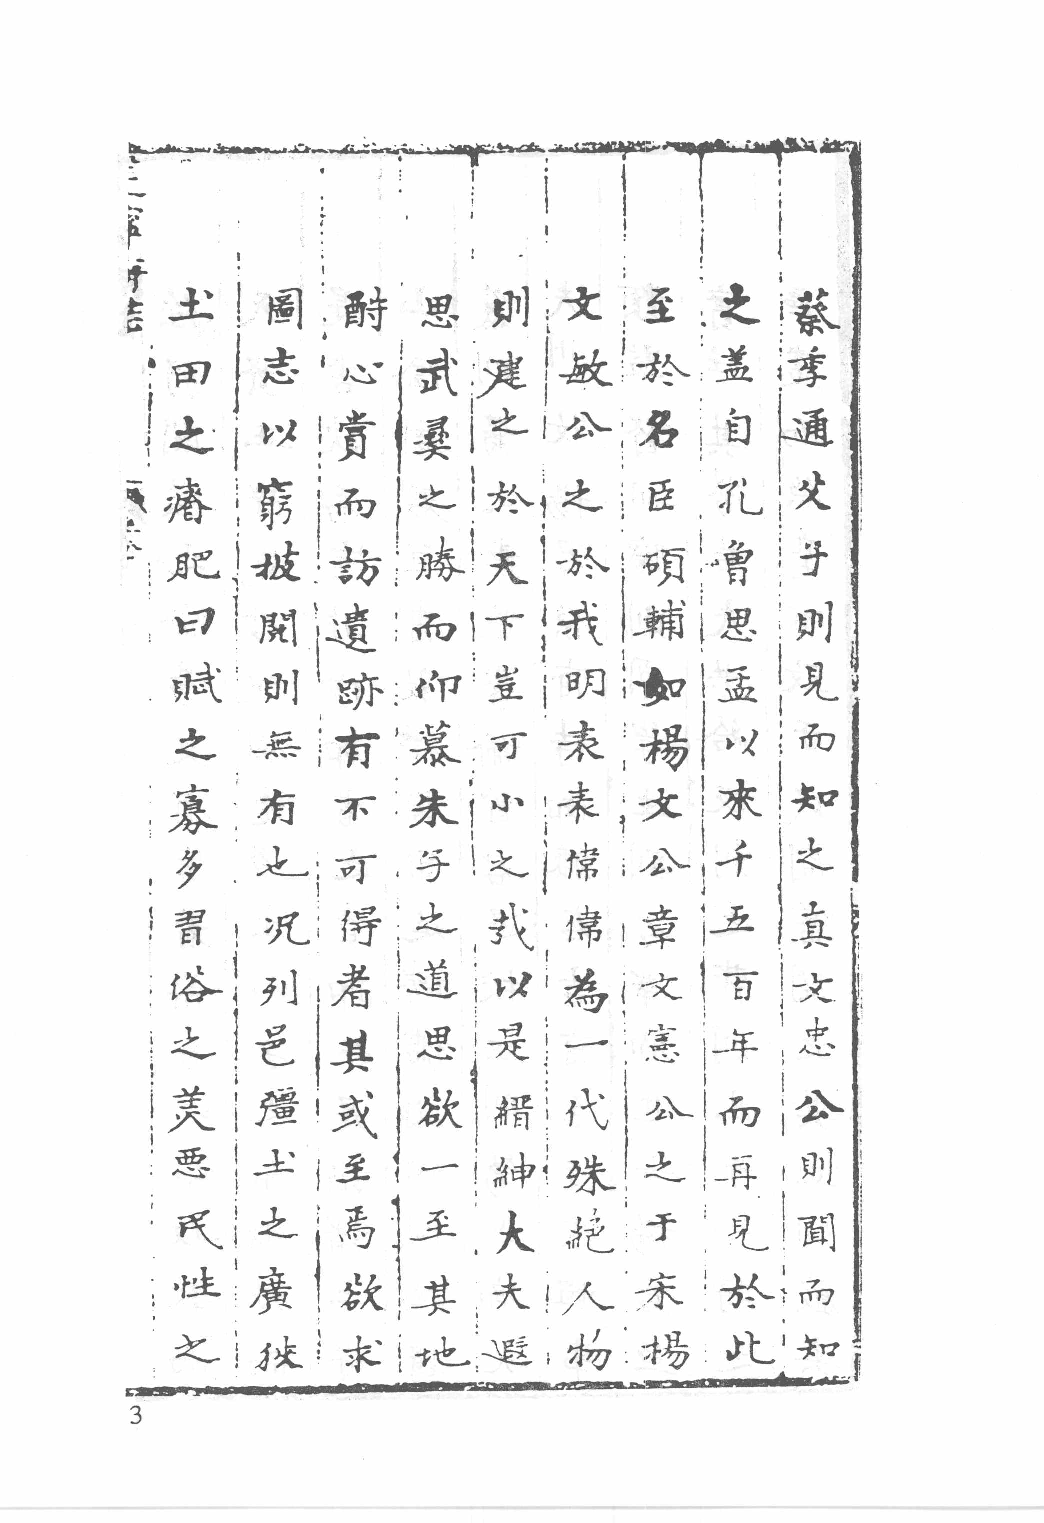 蔡季通父子則見而知之真文忠公則聞而知
之盖自孔曽思孟以來千五百年而再見於此
至於名臣碩輔如楊文公章文憲公之于宋楊
文敏公之於我明表表偉偉為一代殊絕人物
則建之於天下豈可小之㢤以是縉紳大夫遐
思武彛之勝而仰慕朱子之道思欲一至其地
酹心賞而訪遺跡有不可得者其或至焉欲求
圖志以窮披閱則無有也况列邑疆土之廣狹
土田之瘠肥曰賦之寡多習俗之羙惡民性之
3